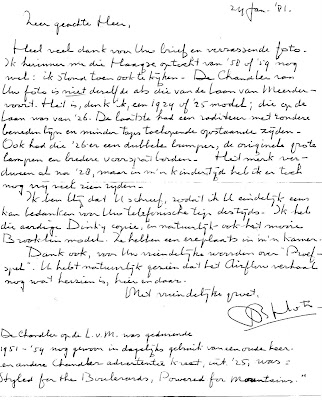 24 Jan. '81.
Zeer geachte Heer,
Heel veel dank voor Uw brief en verrassende foto.
Ik herinner me die Haagse optocht van '58 of '59 nog
wel: ik stond toen ook te kijken - De Chandler van
Uw foto is niet dezelfde als die van de Laan van Meerder-
voort. Het is, denk ik, een 1924 of 25 model; die op de
Laan was van '26. De laatste had een radiateur met zondere
beneden lijn en minder taps toelopende opstaande zijden -
Ook had die '26er een dubbele bumper, de originele grote
lampen en bredere voorspatborden - Het merk ver-
dween al na '28, maar in m'n kindertijd heb ik er toch
nog vrij veel zien rijden -
Ik ben blij dat U schreef, zodat ik U eindelijk eens
kan bedanken voor Uw telefonische tip destijds. Ik heb
die aardige Dinky copie, en natuurlijk ook het mooie
Brooklin model. Ze hebben een ereplaats in m'n kamer.
Dank ook, voor Uw vriendelijke woorden over "Proef-
spel". U hebt natuurlijk gezien dat het Airflow verhaal
nog wat herzien is, hier en daar.
Met vriendelijke groet,
De Chandler op de L.v.M. was gedurende
1951-'54 nog gewoon in dagelijks gebruik van een oude heer.
en andere Chandler advertentie kreet, uit '25, was:
"Styled for the Boulevards, Powered for Mountains."